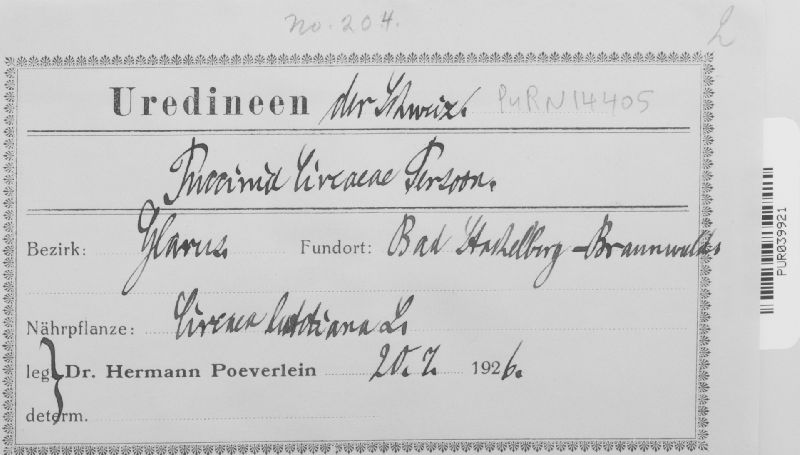 No. 204.
2
Uredineen der Schweiz. PURN14405
Puccinia Circaeae Persoon.
Bezirk: Glarus. Fundort: Bad Stachelberg-Braunwald.
Nährpflanze: Circaea lutetiana L.
leg. Dr. Hermann Poeverlein 20. 7. 1926.
determ.
PUR039921